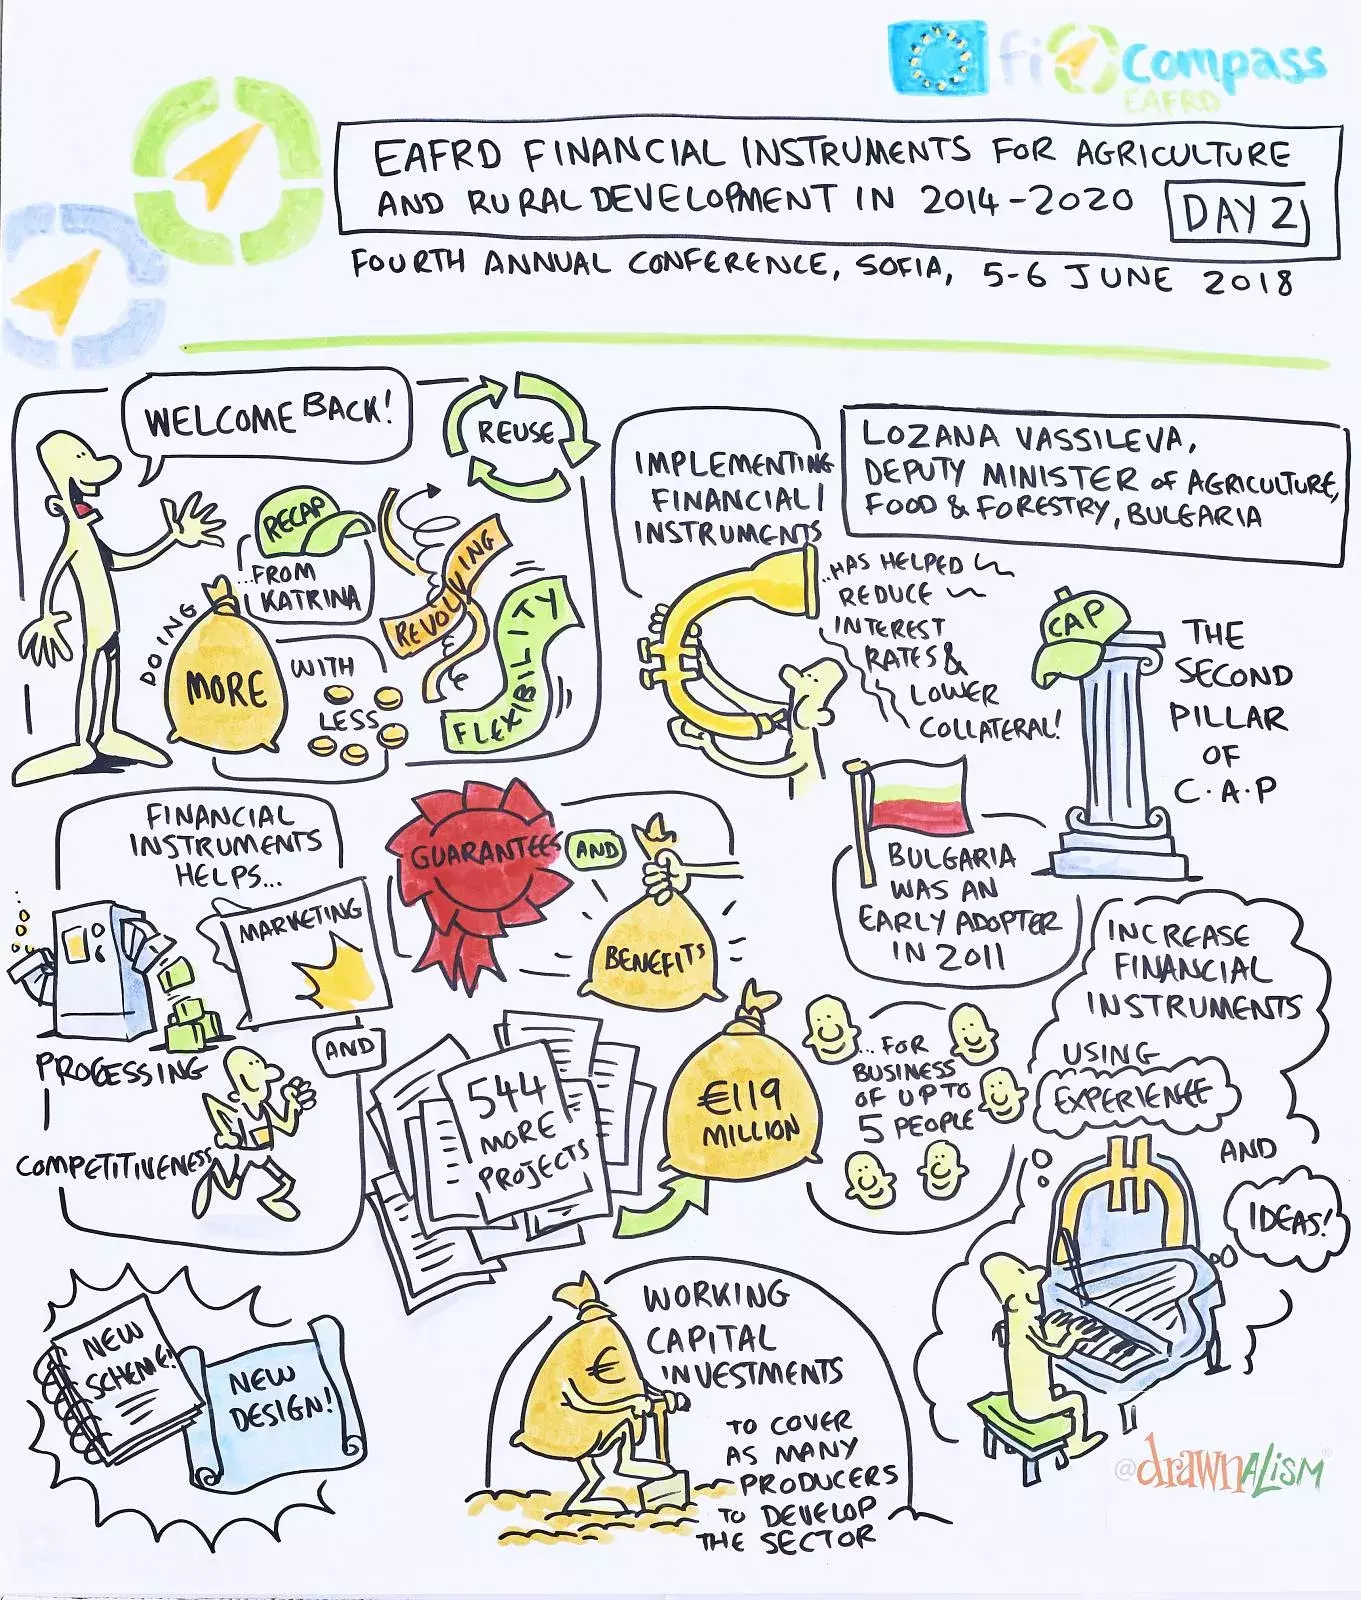 fi compass
EAFRD
EAFRD FINANCIAL INSTRUMENTS FOR AGRICULTURE
AND RURAL DEVELOPMENT IN 2014-2020 DAY 2
FOURTH ANNUAL CONFERENCE, SOFIA, 5-6 JUNE 2018
WELCOME BACK!
REUSE
RECAP
...FROM
KATRINA
REVOLVING
FLEXIBILITY
DOING
MORE
WITH
LESS
IMPLEMENTING
FINANCIAL
INSTRUMENTS
...HAS HELPED
REDUCE
INTEREST
RATES &
LOWER
COLLATERAL!
LOZANA VASSILEVA,
DEPUTY MINISTER of AGRICULTURE,
FOOD & FORESTRY, BULGARIA
CAP
THE
SECOND
PILLAR
OF
C.A.P
BULGARIA
WAS AN
EARLY ADOPTER
IN 2011
FINANCIAL
INSTRUMENTS
HELPS...
MARKETING
PROCESSING
AND
COMPETITIVENESS
GUARANTEES
AND
BENEFITS
544
MORE
PROJECTS
€119
MILLION
...FOR
BUSINESS
OF UP TO
5 PEOPLE
INCREASE
FINANCIAL
INSTRUMENTS
USING
EXPERIENCE
AND
IDEAS!
NEW
SCHEME!
NEW
DESIGN!
€
WORKING
CAPITAL
INVESTMENTS
TO COVER
AS MANY
PRODUCERS
TO DEVELOP
THE SECTOR
@drawnalism®